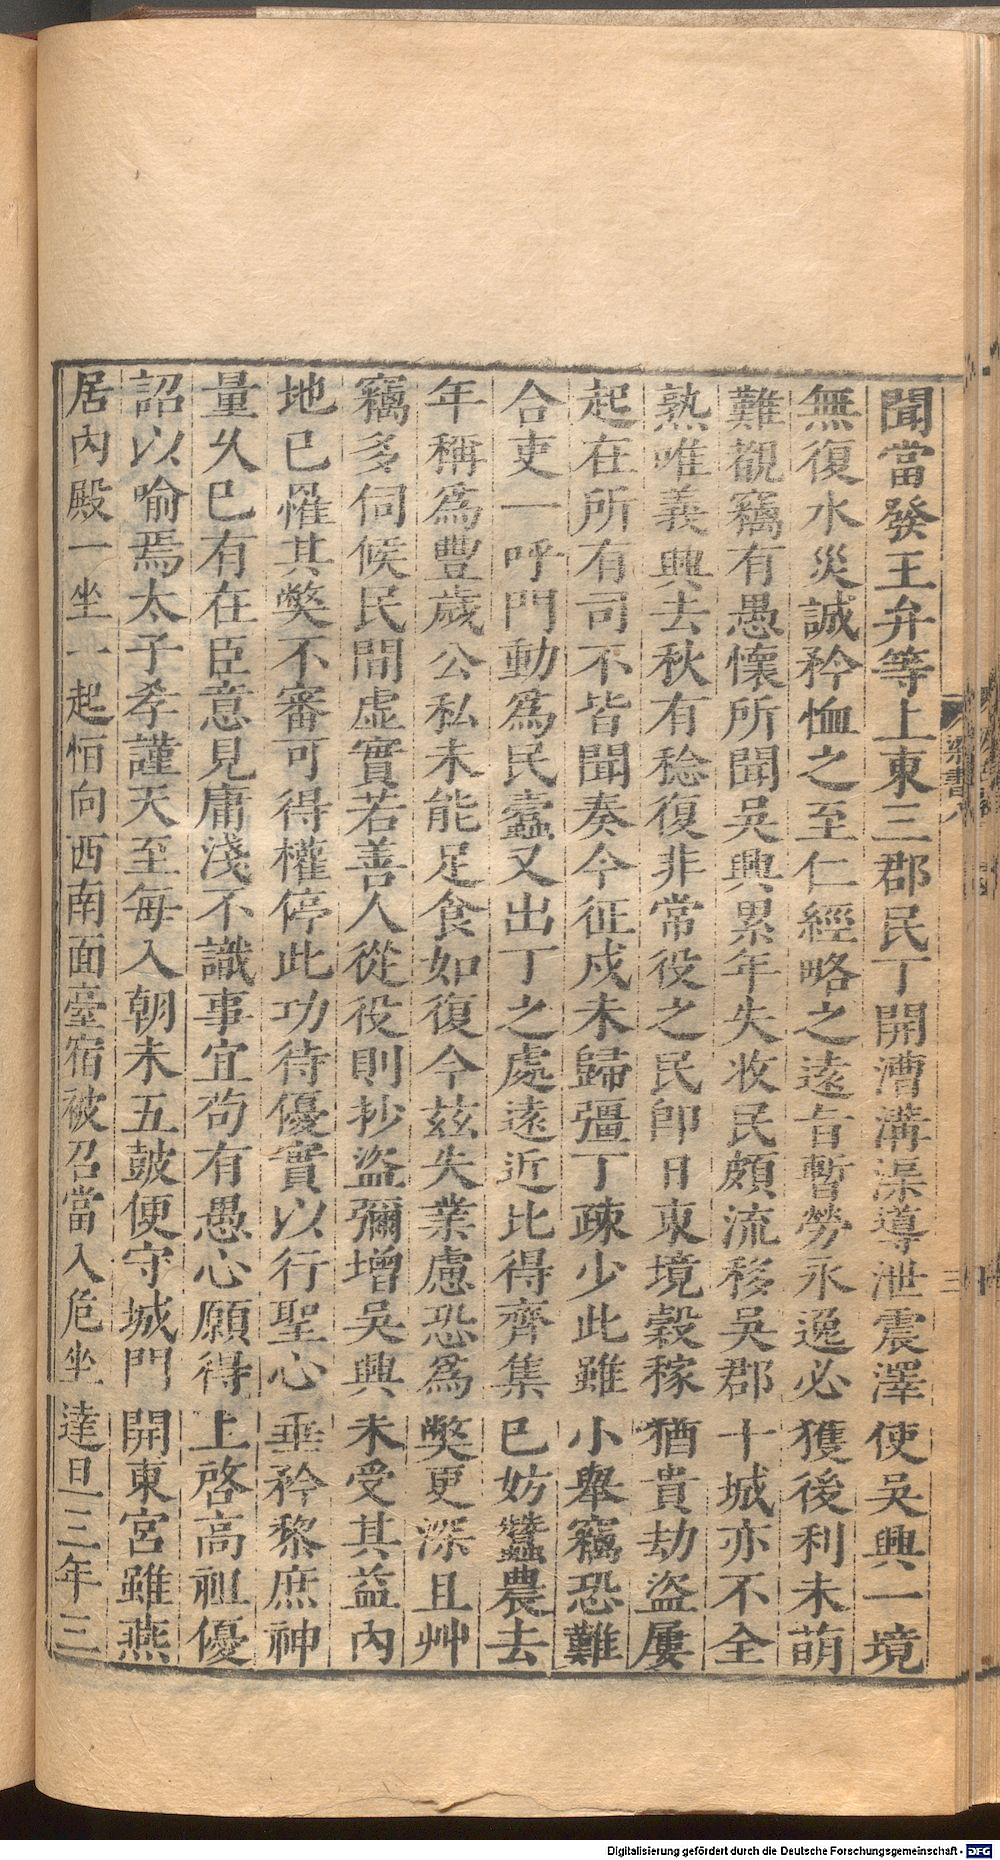 聞當發王弁等上東三郡民丁開漕溝渠導泄震澤使吳興一境
無復水災誠矜恤之至仁經略之遠旨暫勞永逸必獲後利未萌
難覩竊有愚懷所聞吳興累年失收民頗流移吳郡十城亦不全
熟唯義興去秋有稔復非常役之民即日東境穀稼猶貴劫盜屢
起在所有司不皆聞奏今征戍未歸彊丁疎少此雖小舉竊恐難
合吏一呼門動爲民蠹又出丁之處遠近比得齊集已妨蠶農去
年稱爲豐歲公私未能足食如復今茲失業慮恐爲弊更深且艸
竊多伺候民間虛實若善人從役則抄盜彌增吳興未受其益內
地已罹其弊不審可得權停此功待優實以行聖心垂矜黎庶神
量久已有在臣意見庸淺不識事宜苟有愚心願得上啓高祖優
詔以喻焉太子孝謹天至每入朝未五鼓便守城門開東宮雖燕
居內殿一坐一起恒向西南面臺宿被召當入危坐達旦三年三
梁書八
三
Digitalisierung gefördert durch die Deutsche Forschungsgemeinschaft - DFG